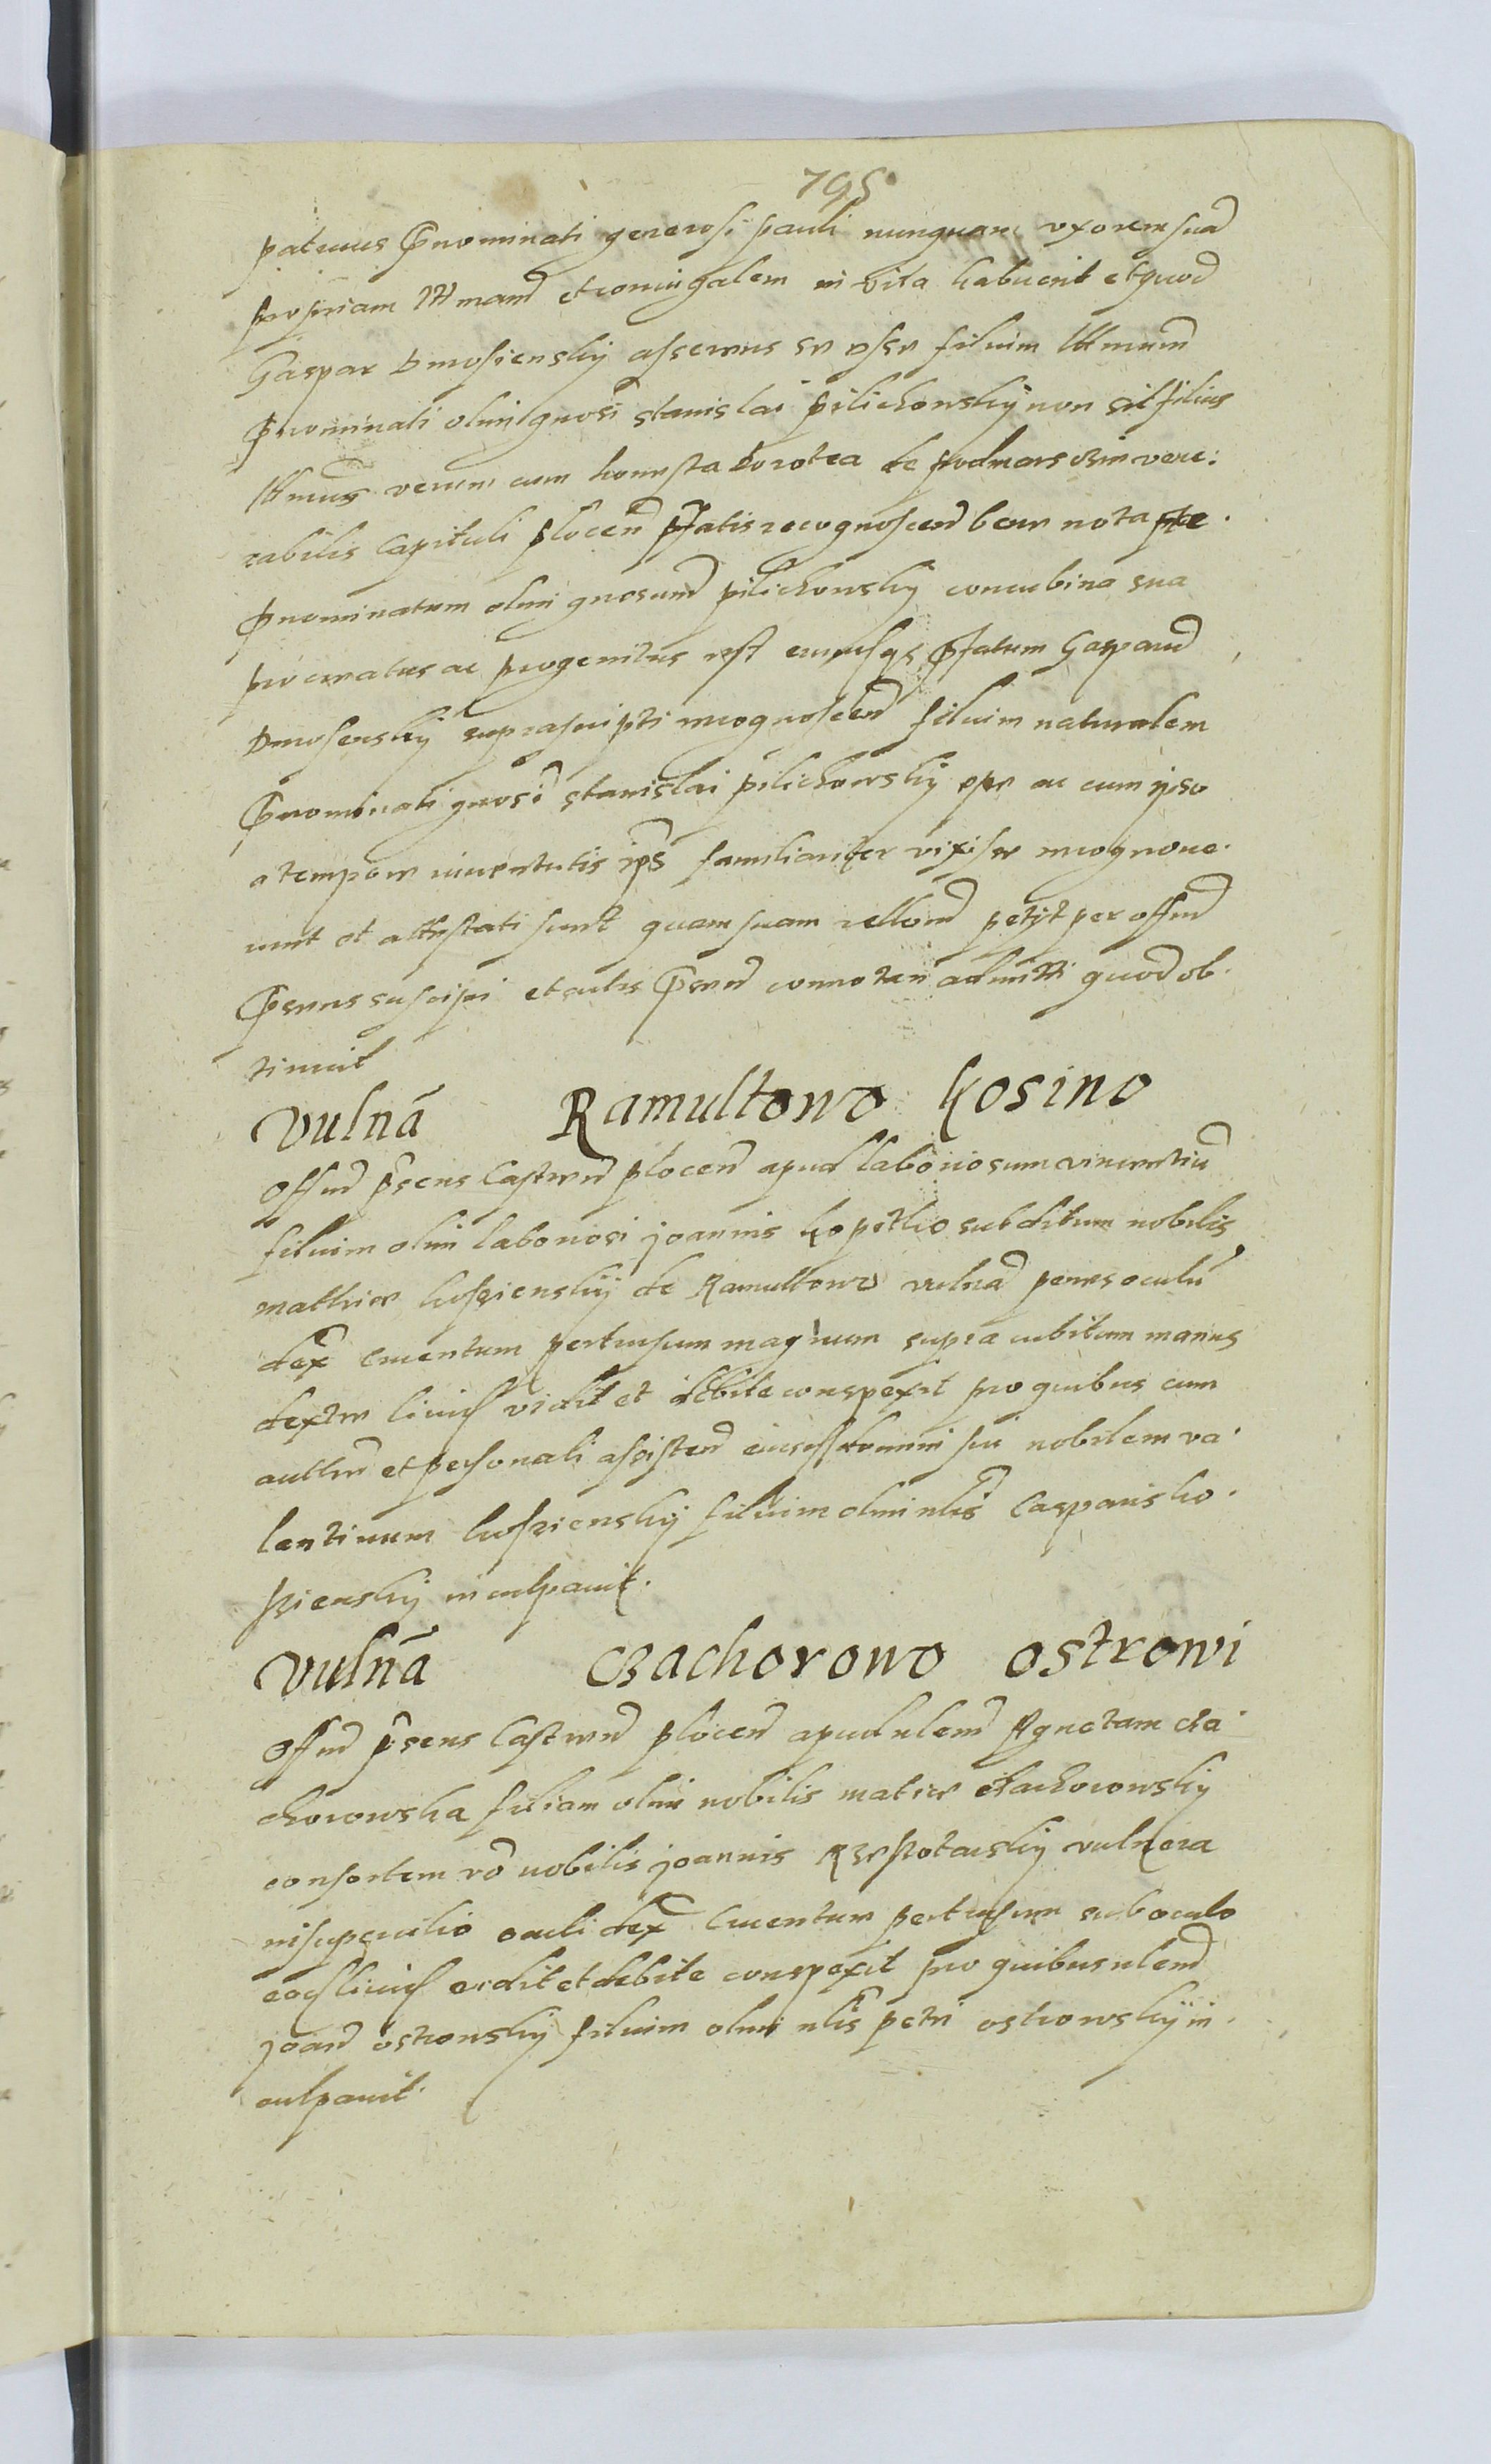 795
patruus Pnominati generosi pauli nunquam vxorem suā
propriam lttimam et coniugalem in vita habuerit et quod
Gaspar Dmosienskij asserens se esse filium lttimum
Pnominati olim gnosi stanislai pilichowskij non sit filius
lttimus verum cum honesta Dorotea de podmars vene:
rabilis Capituli plocen pfatis recognoscen bene nota
Pnominatum olim gnosum pilichowskij concubina sua
procreatus ac progenitus est eumsqs Pfatum Gasparum
Dmosenskij suprascripti recognoscen filium naturalem
Pnominati gnosi stanislai pilichowskij esse ac cum ipso
a tempore iuuentutis ips familiariter vixisse recognoue.
runt et attestati sunt quam suam rellonem petijt per offm
Psens suscipi et actis Psen connotari admitti quod ob.
tinuit
Vulnā Ramultowo Kosino
Offm psens Castren plocen apud laboriosum vincentiū
filium olim laboriosi joannis kopitko subditum nobilis
mathiæ kossienskij de Ramultowo vulna penes oculū
dex cruentum pertusum magnum supra cubitum manus
dextre liuid vidit et debite conspexit pro quibus cum
aucthe et personali assisten eiusd domini sui nobilem va.
lentinum kossienskij filium olim nlis Casparis ko.
ssienskij inculpauit.
Vulnā Czachorowo Ostrowi
Offm psens Castren plocen apud nlem Agnetam cza.
chorowska filiam olim nobilis matiæ czachorowskij
consortem vo nobilis joannis vulnera
in supercilio oculi dex cruentum pertusum sub oculo
eod liuid vidit et debite conspexit pro quibus nlem
joan ostrowskij filium olim nlis petri ostrowskij in.
culpauit.